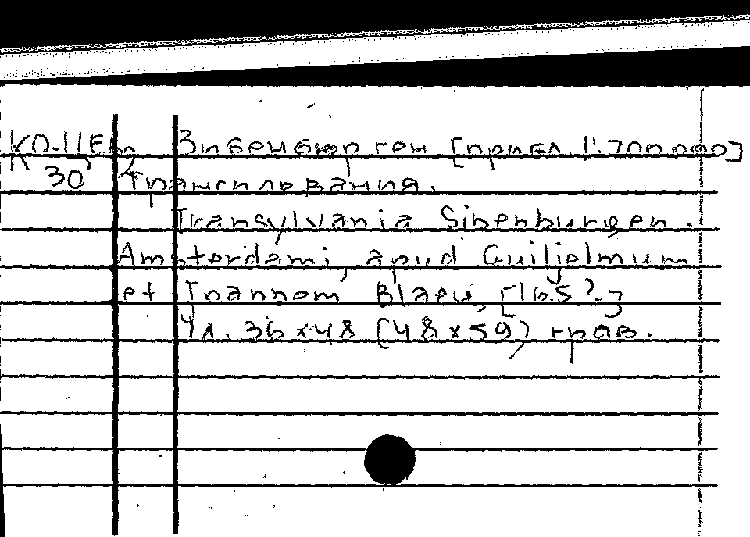 Ко-11Em, Зибенбюрген [прибл. 1:700 000]
30 Трансильвания.
Transylvania Sibenburgen.
Amsterdami, apud Guiljelmum
et Joannem Blaeu, [165?.]
1л. 36х48 (48х59) грав.